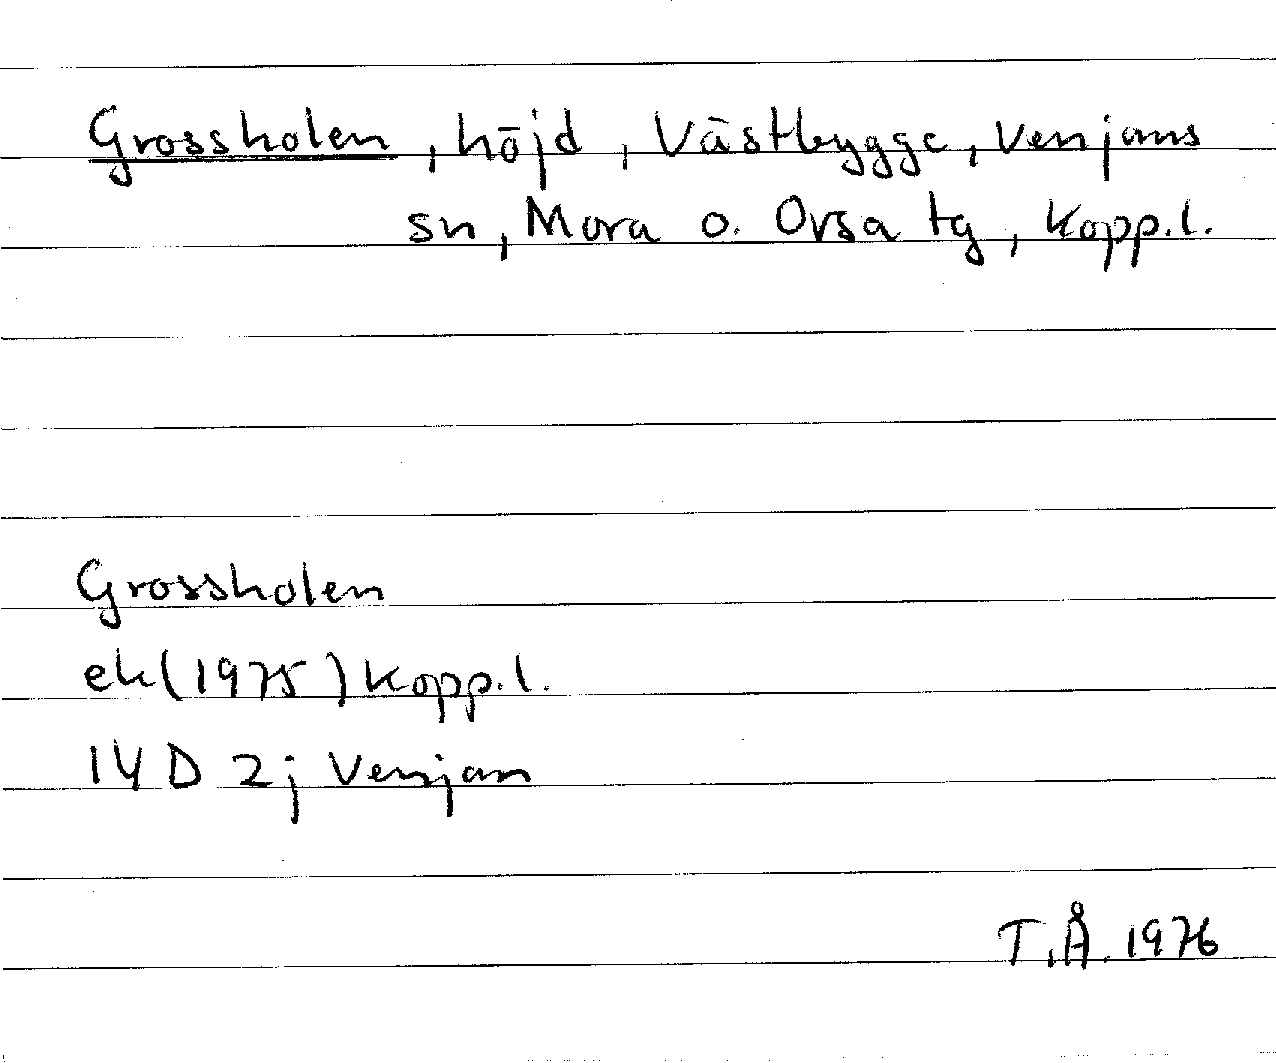 Grossholen, höjd, Västbygge, Venjans
sn, Mora o. Orsa tg, Kopp.l.
Grossholen
ek(1975) Kopp.l.
14 D 2j Venjan
T.Å. 1976